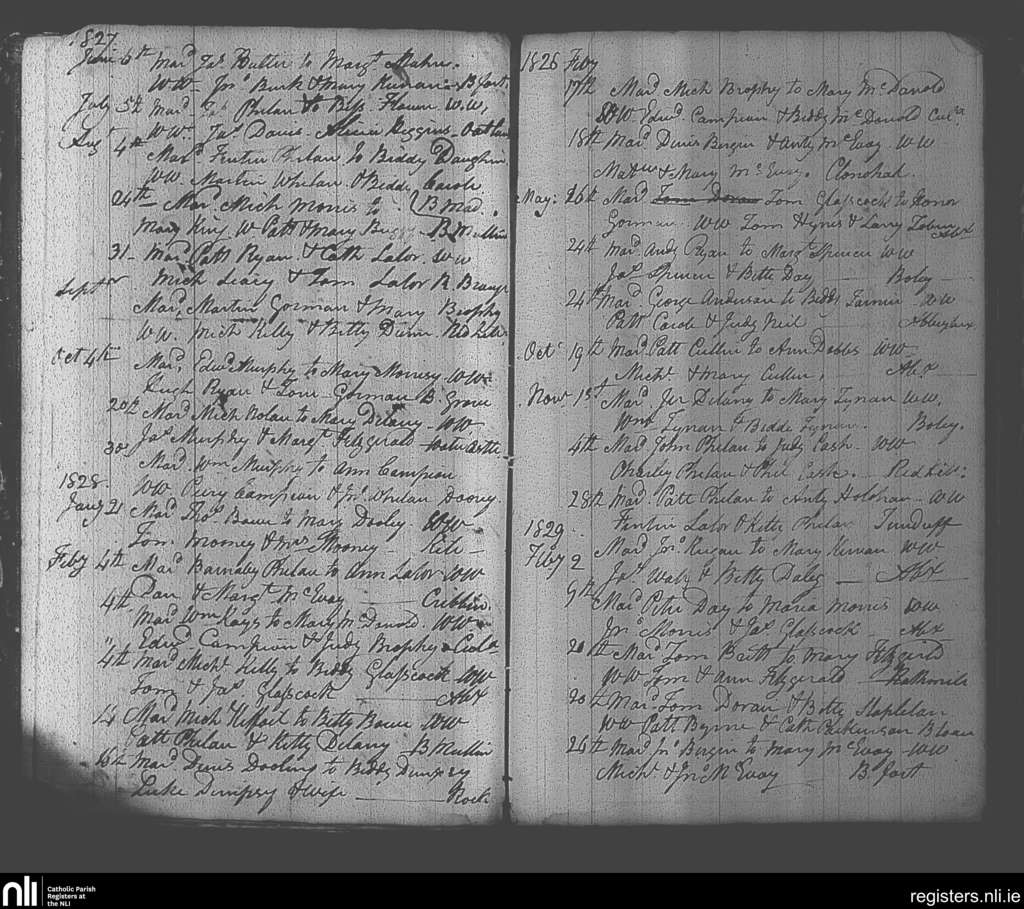 1827
June 6th Mard Jas Butler to Margt Maher.
WW Jos Burk & Mary Kinnane B,fort,
July 5th Mard Jas Phelan to Bess Flavin W.W,
WW. Jas Davis. Higgins
Augt 4th Mard Fintin Phelan to Biddy
WW. Martin Whelan & Biddy Carole
24th Mard Mich Morris to B Mad.
Mary King, W Patt & Mary B Mullin
31 Mard Patt Ryan & Cath Lalor. WW
Mich Leary & Tom Lalor R.
Septr Mard Martin Gorman & Mary Brophy
WW. Mich Kelly & Betty Dunn
Oct 4th Mard Edwd Murphy to Mary Morrisy WW
Hugh Ryan & Tom Gorman B. Grove
20th Mard Mich Nolan to Mary Delany WW
Jas Murphy & Margt Fitzgerald Watercastle
30 Mard Wm Murphy to Ann Campion
1828. WW Peiry Campion & Jno Whelan
Jany 21 Mard Thos Bowe to Mary Dooley. WW
Tom Mooney & Mrs Mooney
Feby 4th Mard Barnaby Phelan to Ann Lalor WW
Dan & Margt McEvoy Cribbin.
4th Mard Wm Kays to Mary McDonod. WW
Edwd Campion & Judy Brophy
4th Mard Michl Kelly to Biddy Glasscock WW
Tom & Jas Glasscock Abx
14 Mard Mich to Betty Bowe WW
Patt Phelan & Kitty Delany B Mullin
16th Mard Denis Dooling to Biddy Dempsey
Luke Dempsey & wife Rock
1828 Feby
17th Mard Mich Brophy to Mary McDanold
WW Edwd Campian & Biddy McDonold
18th Mard Denis Bergin & Anty McEvoy. WW
Matw & Mary McEvoy. Clonohah.
May: 26th Mard Tom Doran Tom Glasscock to Honor
Gorman. WW Tom Hynes & Larry
24th Mard Andy Ryan to Margt Spencer WW
Jas Spencer & Betty Day Boley
24th Mard George Anderson to Biddy WW
Patt Carole & Judy Neil Abbeyleix
Octr 19th Mard Patt Cullin to Ann Dobbs WW
Michl & Mary Cullin, Abx
Novr 1st Mard Jer Delany to Mary Tynan WW,
Wm Tynan & Biddy Tynan. Boley.
4th Mard John Phelan to Judy Cash WW
Charley Phelan & Cash. Redhill:
28th Mard Patt Phelan to Anty Holohan WW
1829 Fintin Lalor & Kitty Phelan Tunduff
Feby 2 Mard Jno Keegan to Mary Kirwan WW
Jas & Betty Daley Abx
9th Mard Petr Day to Maria Morris WW
Jno Morris & Jas Glasscock Abx
20th Mard Tom Britt to Mary Fitzgerld
WW Tom & Ann Fitzgerald
20th Mard Tom Doran & Betty Stapleton
WW Patt Byrne & Cath
26th Mard Jno Bergin to Mary McEvoy WW
Michl & Jno McEvoy B,fort
nli
Catholic Parish
Registers at
the NLI
registers.nli.ie